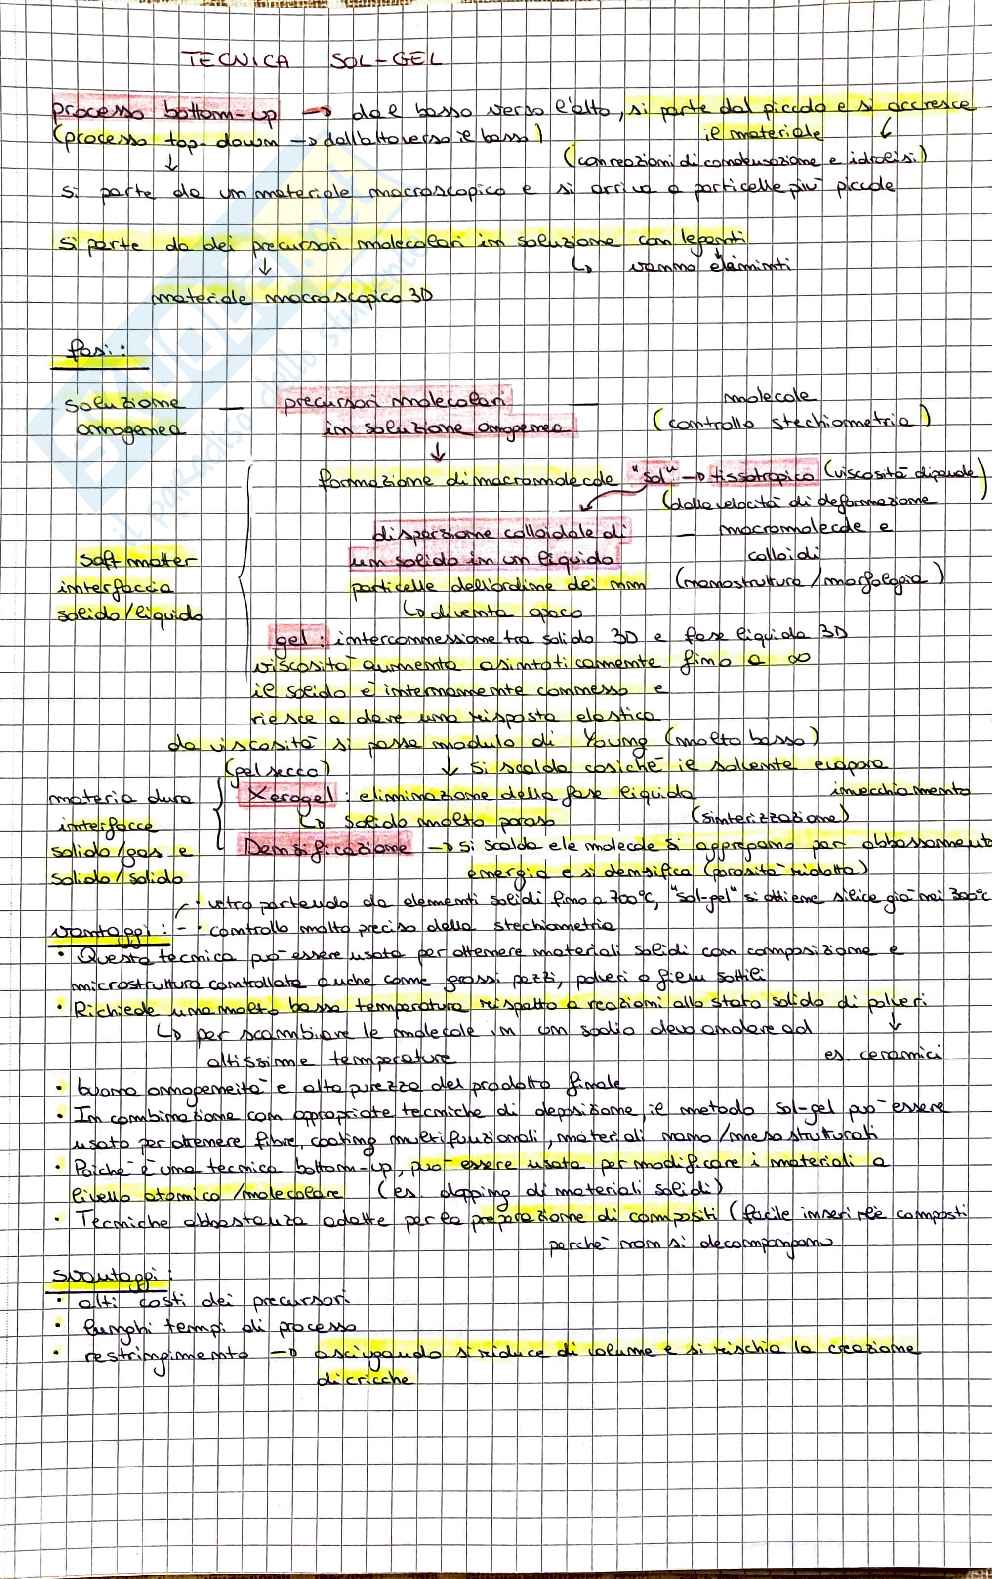 TECNICA SOL-GEL
processo bottom-up → dal basso verso l'alto, si parte dal piccolo e si accresce
(processo top-down → dall'alto verso il basso) il materiale
(con reazioni di condensazione e idrolisi)
si parte da un materiale macroscopico e si arriva a particelle più piccole
si parte da dei precursori molecolari in soluzione con leganti
↳ vanno eliminati
materiale macroscopico 3D
fasi:
soluzione omogenea — precursori molecolari in soluzione omogenea — molecole (controllo stechiometria)
formazione di macromolecole "sol" → tissotropico (viscosità dipende
(dalla velocità di deformazione
dispersione colloidale di — macromolecole e
un solido in un liquido colloidi
soft mater interfaccia solido/liquido
particelle dell'ordine dei nm (nanostruttura/morfologia)
↳ diventa opaco
gel: interconnessione tra solido 3D e fase liquida 3D
viscosità aumenta asintoticamente fino a ∞
il solido è internamente connesso e
riesce a dare una risposta elastica
da viscosità si passa modulo di Young (molto basso)
(gel secco) ↓ si scalda cosiché il solvente evapora
materia dura interfacce solido/gas e solido/solido
Xerogel: eliminazione della fase liquida invecchiamento
↳ solido molto poroso (sinterizzazione)
Densificazione → si scalda e le molecole si aggregano per abbassamento
energia e si densifica (porosità ridotta)
• vetro partendo da elementi solidi fino a 700°C, "sol-gel" si ottiene silice già nei 300°C
vantaggi: - • controllo molto preciso della stechiometria
• Questa tecnica può essere usata per ottenere materiali solidi con composizione e
microstruttura controllata anche come grossi pezzi, polveri o film sottili
• Richiede una molto bassa temperatura rispetto a reazioni allo stato solido di polveri
↳ per scambiare le molecole in un solido devo andare ad ↓
altissime temperature es. ceramici
• buona omogeneità e alta purezza del prodotto finale
• In combinazione con appropriate tecniche di deposizione, il metodo sol-gel può essere
usato per ottenere fibre, coating multifunzionali, materiali nano/meso strutturati
• Poiché è una tecnica bottom-up, può essere usata per modificare i materiali a
livello atomico/molecolare (es. dopping di materiali solidi)
• Tecniche abbastanza adatte per la preparazione di compositi (facile inserire composti
perché non si decompongano
svantaggi:
• alti costi dei precursori
• lunghi tempi di processo
• restringimento → asciugando si riduce di volume e si rischia la creazione
di cricche